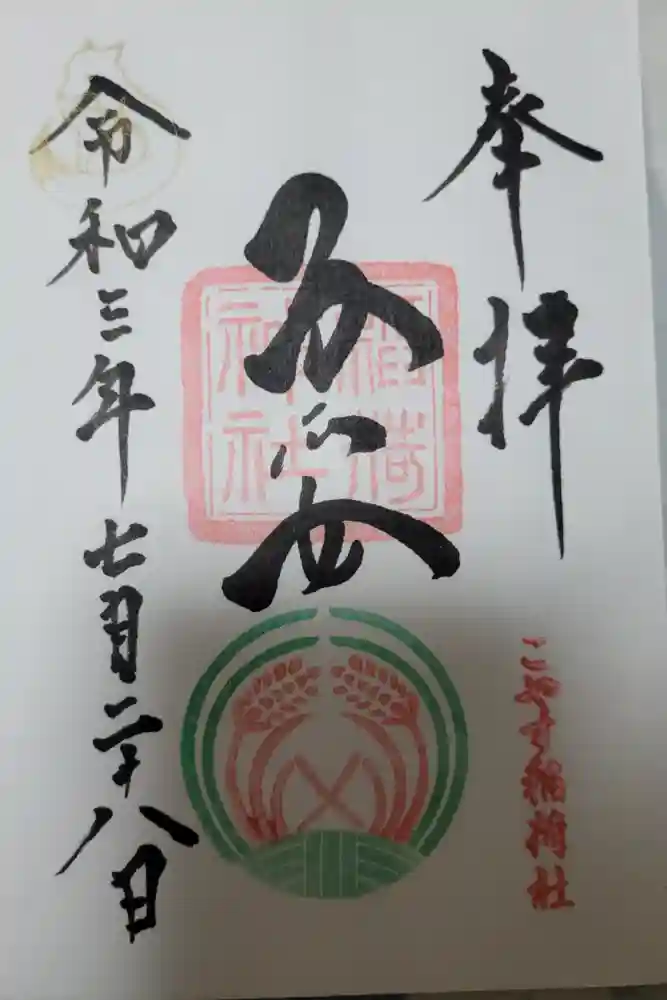 奉拝
子安
稲荷
神社
こやす稲荷社
令和三年七月二十八日